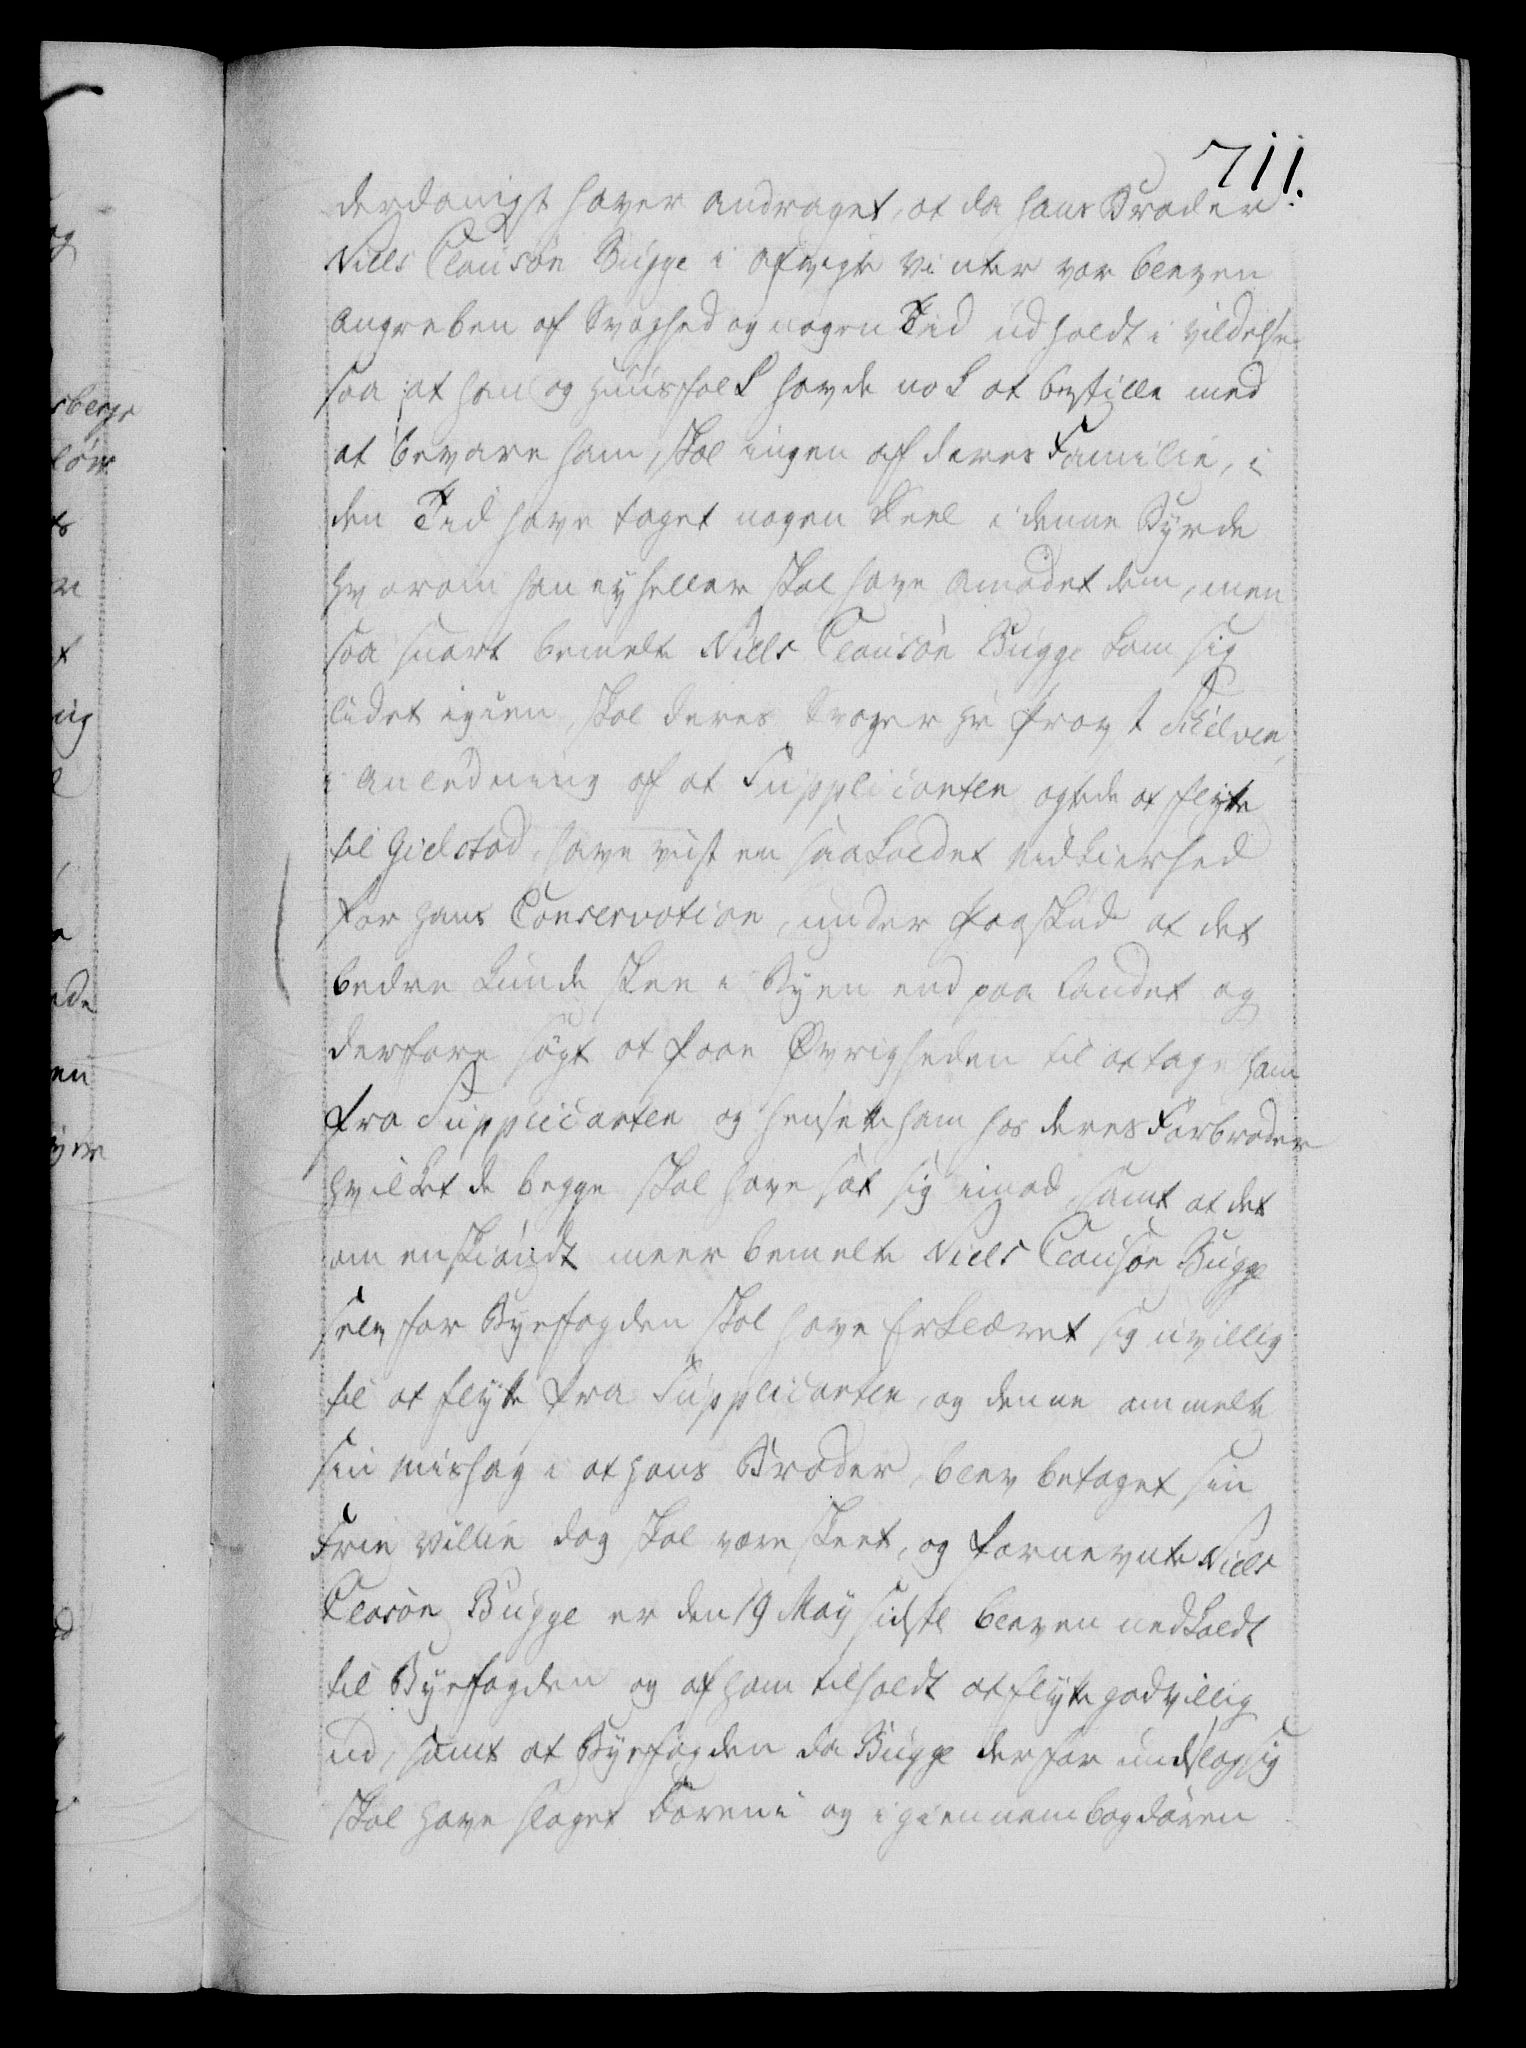 711.
derdanigst haver andraget, at da hans Broder
Niels Clausøn Bugge i afvigte Vinter var bleven
angreben af Svaghed og nogen Tid udholdt i vildelse
saa at han og huusfolk havde nok at bestille med
at bevare ham, skal ingen af deres Familie, i
den Tid have taget nogen Deel i denne Byrde
hvorom han ey heller skal have anmodet dem, men
saa snart bemelte Niels Clausøn Bugge kom sig
lidet igien, skal deres Svoger Hr Provst Schelven,
i Anledning af at Supplicanten agtede at flytte
til Gielstad, have viist en saakaldet nidkierhed
for hans Conservation, under Paaskud at det
bedre kunde skee i Byen end paa Landet og
derfore søgt at faae Øvrigheden til at tage ham
fra Supplicanten og hensette ham hos deres Farbroder
hvilket de begge skal have sat sig imod, samt at det
omenskiøndt meerbemelte Niels Clausøn Bugge
selv for Byefogden skal have Erklæret sig uvillig
til at flytte fra Supplicanten, og denne anmelte
sin mishag i at hans Broder blev betaget sin
Frie Villie dog skal være skeet, og fornevnte Niels
Clasøn Bugge er den 19 May sidste bleven nedkaldt
til Byefogden og af ham tilholdt at flytte godvillig
ud, samt at Byefogden da Bugge derfor undslog sig
skal have slaget Døren i og igiennem bagdøren